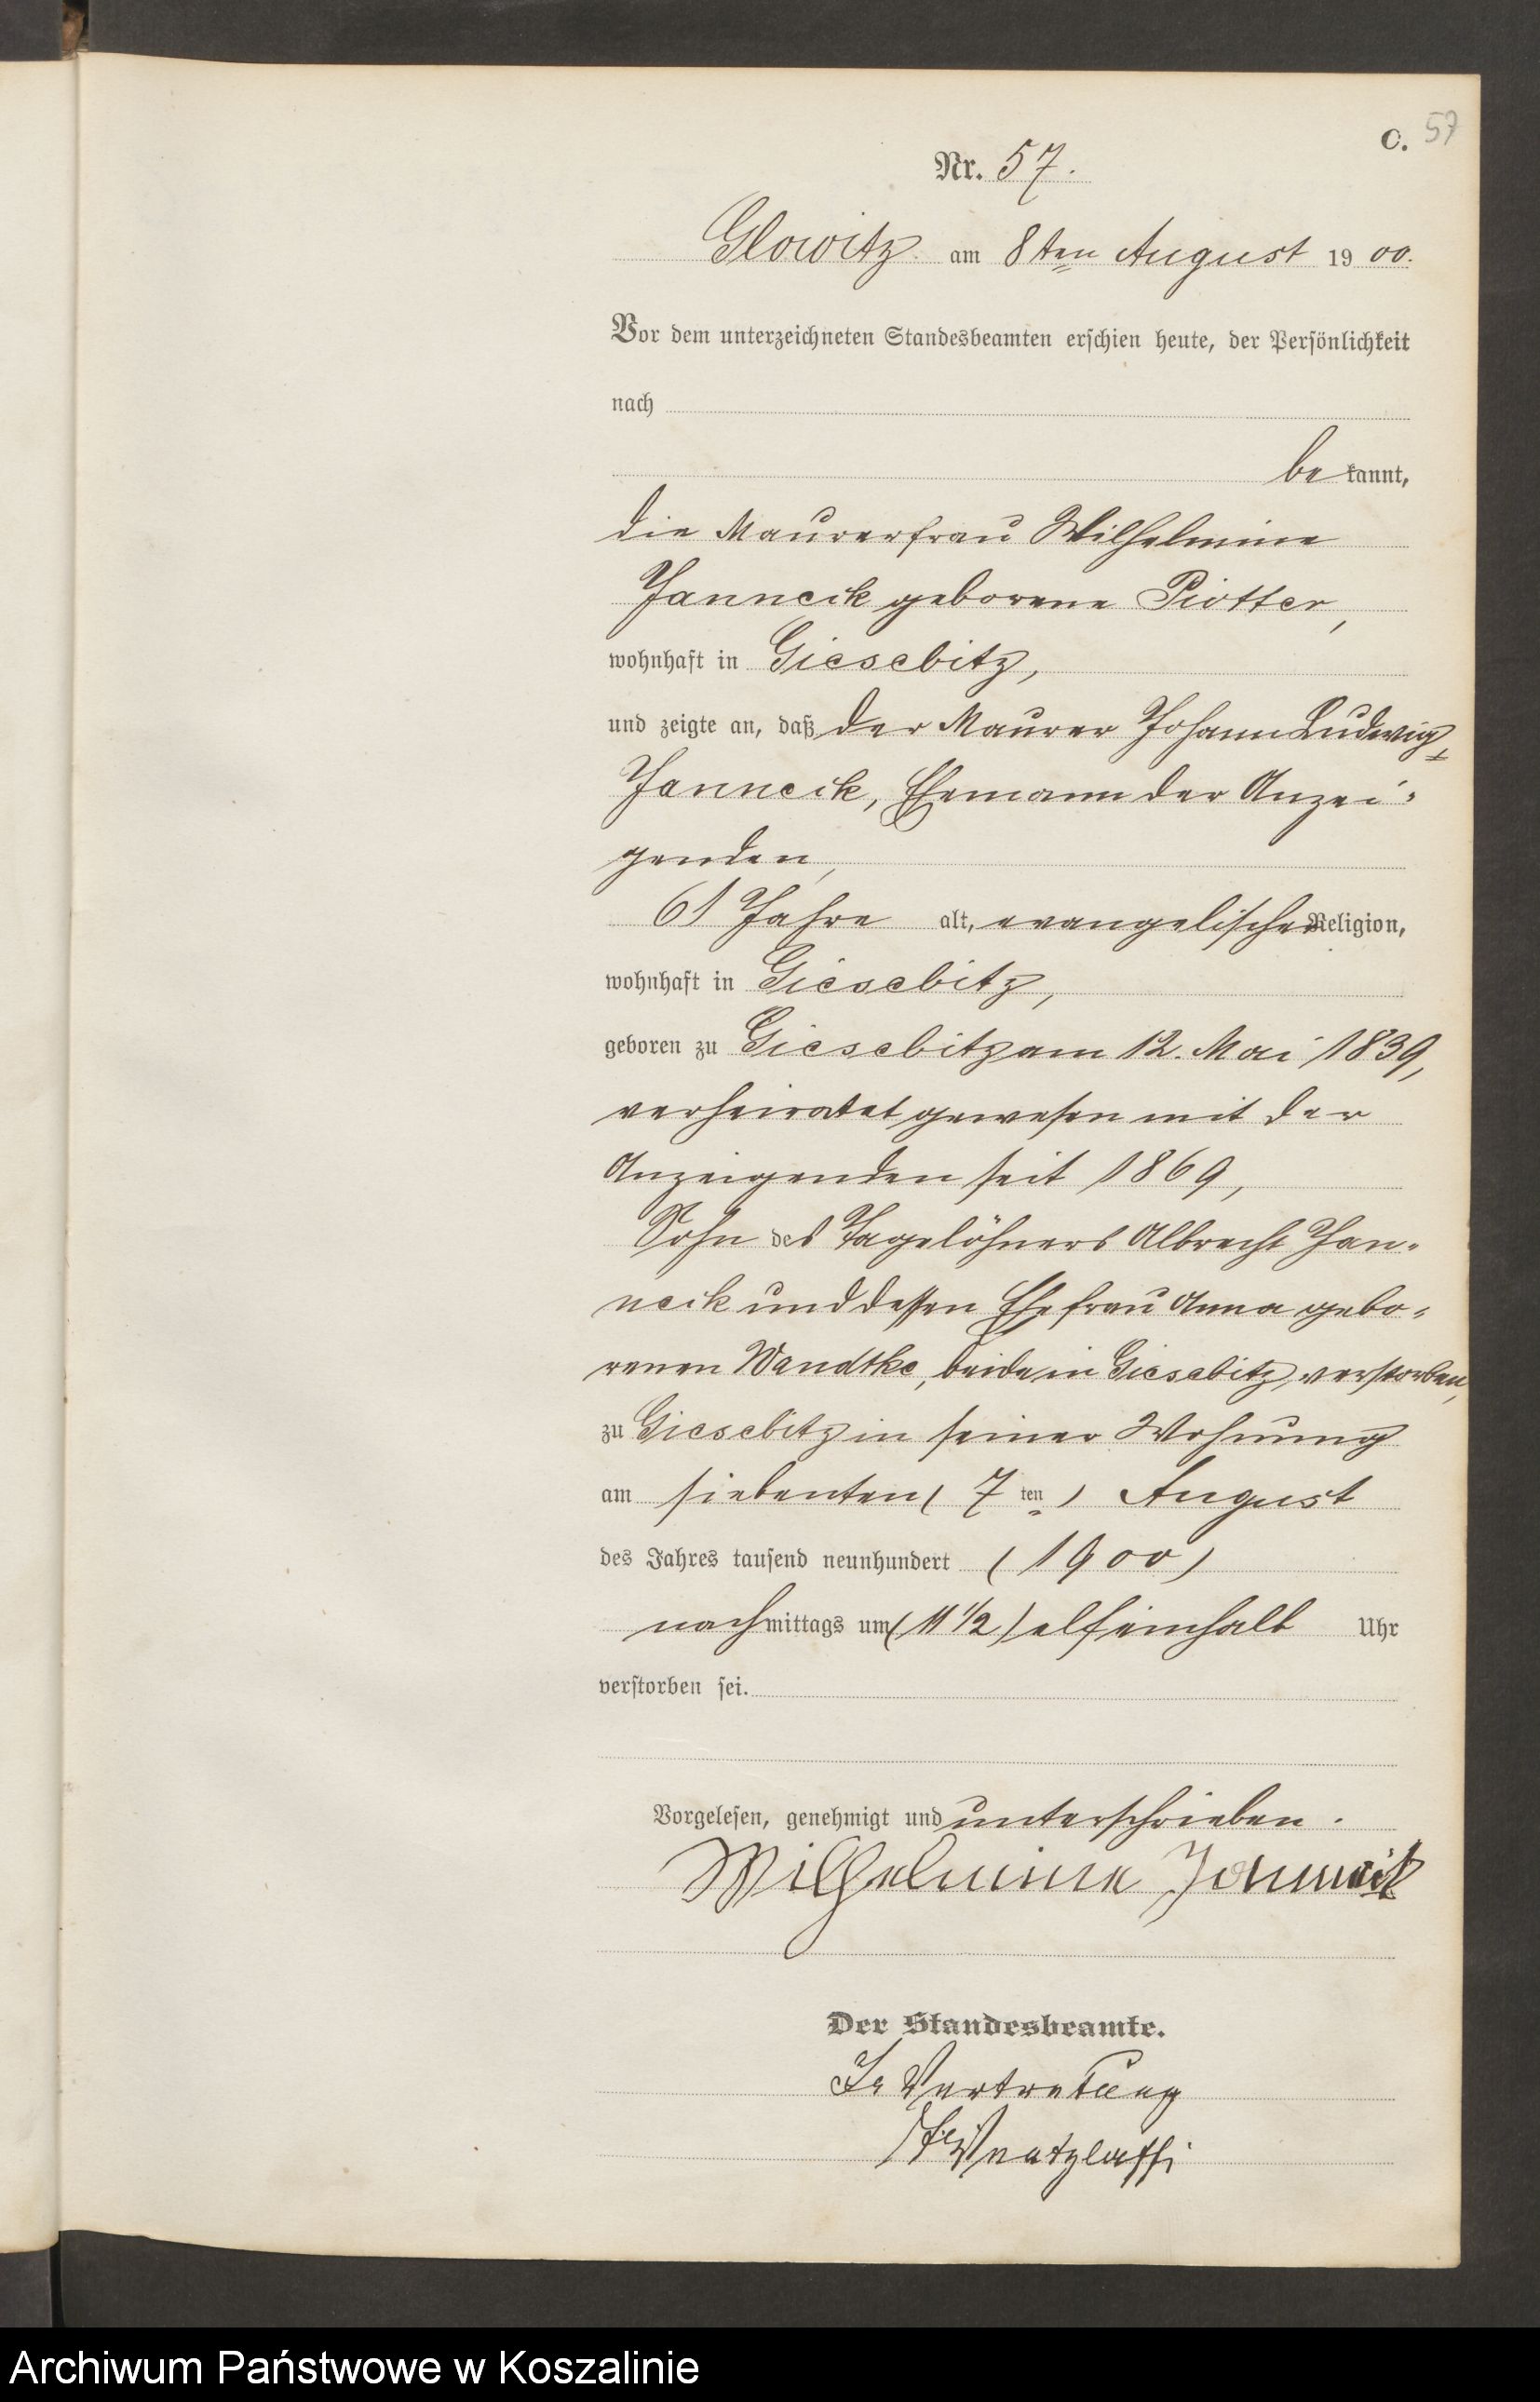 C. 57
Nr. 57.
Glowitz am 8ten August 1900.
Vor dem unterzeichneten Standesbeamten erschien heute, der Persönlichkeit
nach
bekannt,
die Maurerfrau Wilhelmine
Janneck geborene Piotter,
wohnhaft in Giesebitz,
und zeigte an, daß der Maurer Johann Ludwig
Janneck, Ehemann der Anzei-
genden,
61 Jahre alt, evangelischer Religion,
wohnhaft in Giesebitz,
geboren zu Giesebitz am 12. Mai 1839,
verheiratet gewesen mit der
Anzeigenden seit 1869,
Sohn des Tagelöhners Albrecht Jan-
neck und dessen Ehefrau Anna gebo-
renen Wandtke, beide in Giesebitz verstorben,
zu Giesebitz in seiner Wohnung
am siebenten (7ten) August
des Jahres tausend neunhundert (1900)
nachmittags um (11 1/2) elfeinhalb Uhr
verstorben sei.
Vorgelesen, genehmigt und unterschrieben.
Wilhelmine
Der Standesbeamte.
In Vertretung
Archiwum Państwowe w Koszalinie